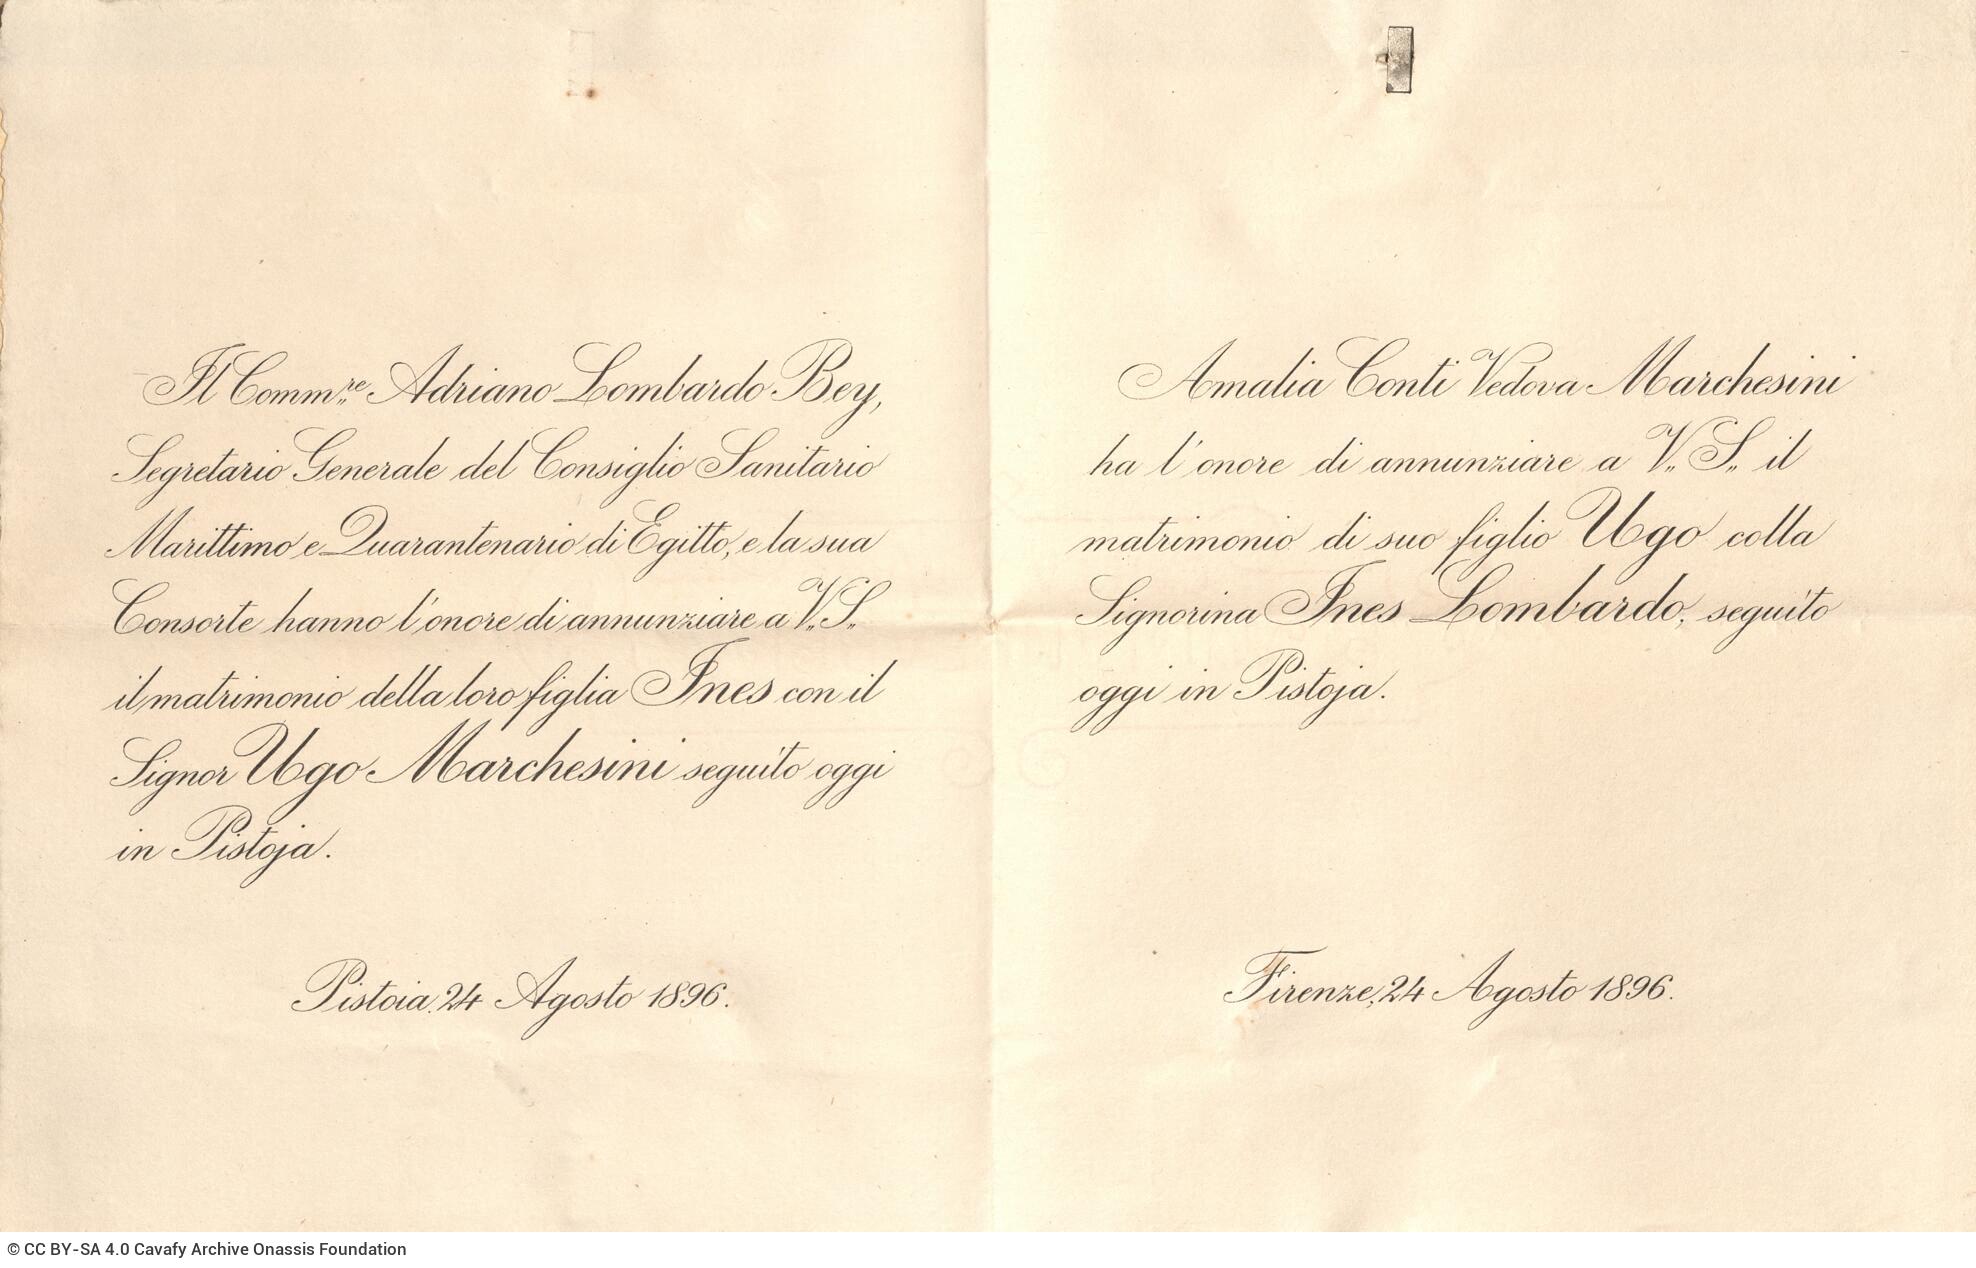 Il Comm.re Adriano Lombardo Bey,
Segretario Generale del Consiglio Sanitario
Marittimo e Quarantenario di Egitto, e la sua
Consorte hanno l'onore di annunziare a V.. S..
il matrimonio della loro figlia Ines con il
Signor Ugo Marchesini seguìto oggi
in Pistoja.
Pistoia, 24 Agosto 1896.
Amalia Conti Vedova Marchesini
ha l'onore di annunziare a V.. S.. il
matrimonio di suo figlio Ugo colla
Signorina Ines Lombardo, seguìto
oggi in Pistoja.
Firenze, 24 Agosto 1896.
© CC BY-SA 4.0 Cavafy Archive Onassis Foundation